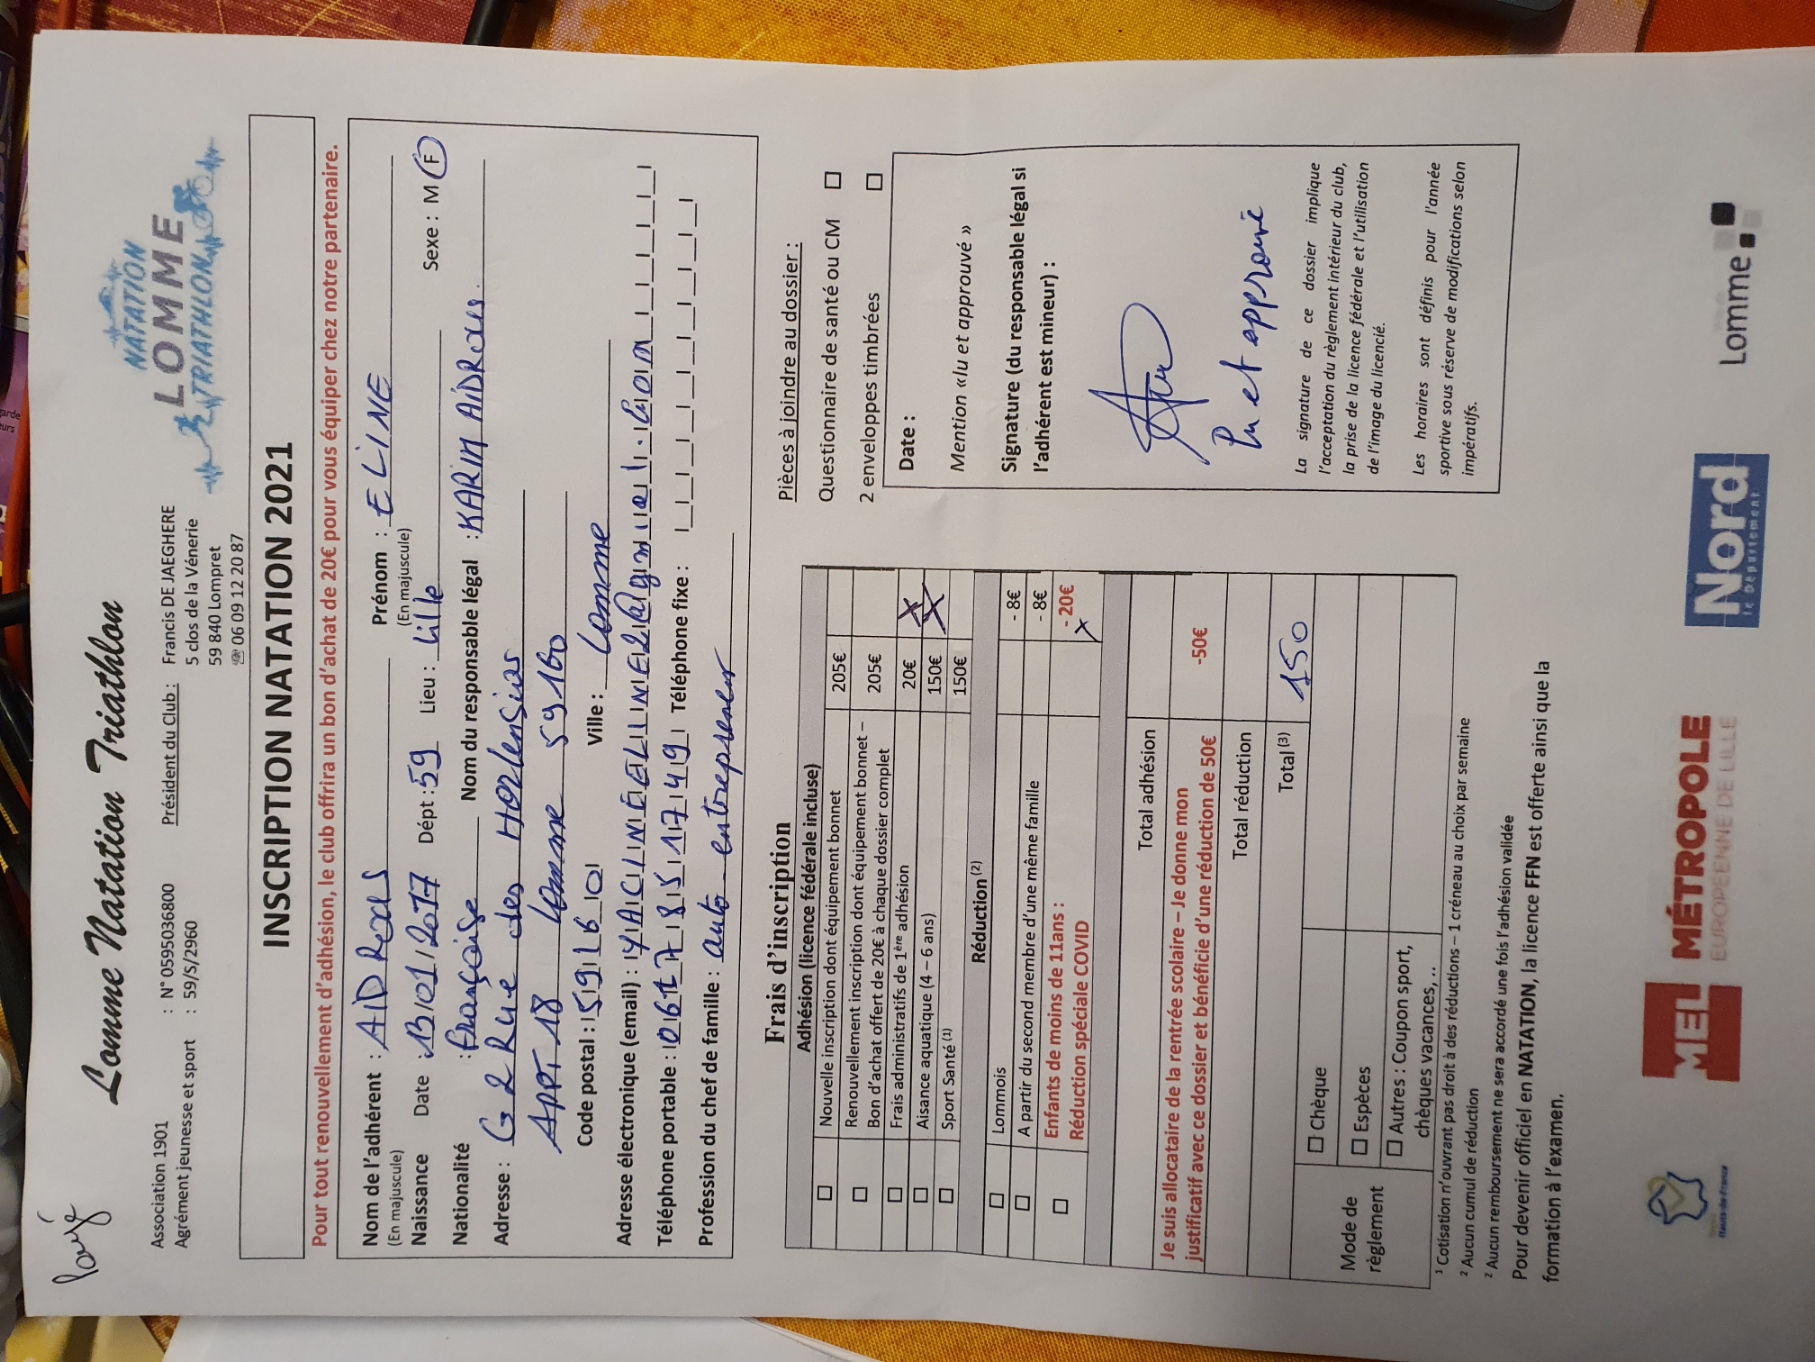 payé
Lomme Natation Triathlon
NATATION
LOMME
TRIATHLON
Association 1901 : N° 0595036800 Président du Club : Francis DE JAEGHERE
Agrément jeunesse et sport : 59/S/2960 5 clos de la Vénerie
59 840 Lompret
☏ 06 09 12 20 87
INSCRIPTION NATATION 2021
Pour tout renouvellement d'adhésion, le club offrira un bon d'achat de 20€ pour vous équiper chez notre partenaire.
Nom de l'adhérent : AIDRous Prénom : ELINE
(En majuscule) (En majuscule)
Naissance Date : 13/01/2017 Dépt : 59 Lieu : Lille Sexe : M F
Nationalité : Française Nom du responsable légal : KARIM AIDRous.
Adresse : G 2 Rue des HORtensias
APPT 18 Lomme 59160
Code postal : 59160 Ville : Lomme
Adresse électronique (email) : YACINEELINE2@gmail.com
Téléphone portable : 0677851749 Téléphone fixe :
Profession du chef de famille : auto-entrepreneur
Frais d'inscription
Adhésion (licence fédérale incluse)
☐ Nouvelle inscription dont équipement bonnet 205€
☐ Renouvellement inscription dont équipement bonnet – 205€
Bon d'achat offert de 20€ à chaque dossier complet
☐ Frais administratifs de 1ère adhésion 20€ X
☐ Aisance aquatique (4 – 6 ans) 150€ X
☐ Sport Santé (1) 150€
Réduction (2)
☐ Lommois - 8€
☐ A partir du second membre d'une même famille - 8€
☐ Enfants de moins de 11ans : - 20€
Réduction spéciale COVID X
Total adhésion
Je suis allocataire de la rentrée scolaire – Je donne mon
justificatif avec ce dossier et bénéficie d'une réduction de 50€ -50€
Total réduction
Total (3) 150
Mode de règlement
☐ Chèque
☐ Espèces
☐ Autres : Coupon sport,
chèques vacances,..
Pièces à joindre au dossier :
Questionnaire de santé ou CM ☐
2 enveloppes timbrées ☐
Date :
Mention «lu et approuvé »
Signature (du responsable légal si
l'adhérent est mineur) :
Lu et approuvé
La signature de ce dossier implique
l'acceptation du règlement intérieur du club,
la prise de la licence fédérale et l'utilisation
de l'image du licencié.
Les horaires sont définis pour l'année
sportive sous réserve de modifications selon
impératifs.
1 Cotisation n'ouvrant pas droit à des réductions – 1 créneau au choix par semaine
2 Aucun cumul de réduction
2 Aucun remboursement ne sera accordé une fois l'adhésion validée
Pour devenir officiel en NATATION, la licence FFN est offerte ainsi que la
formation à l'examen.
MEL MÉTROPOLE
EUROPÉENNE DE LILLE
Nord
le Département
Lomme